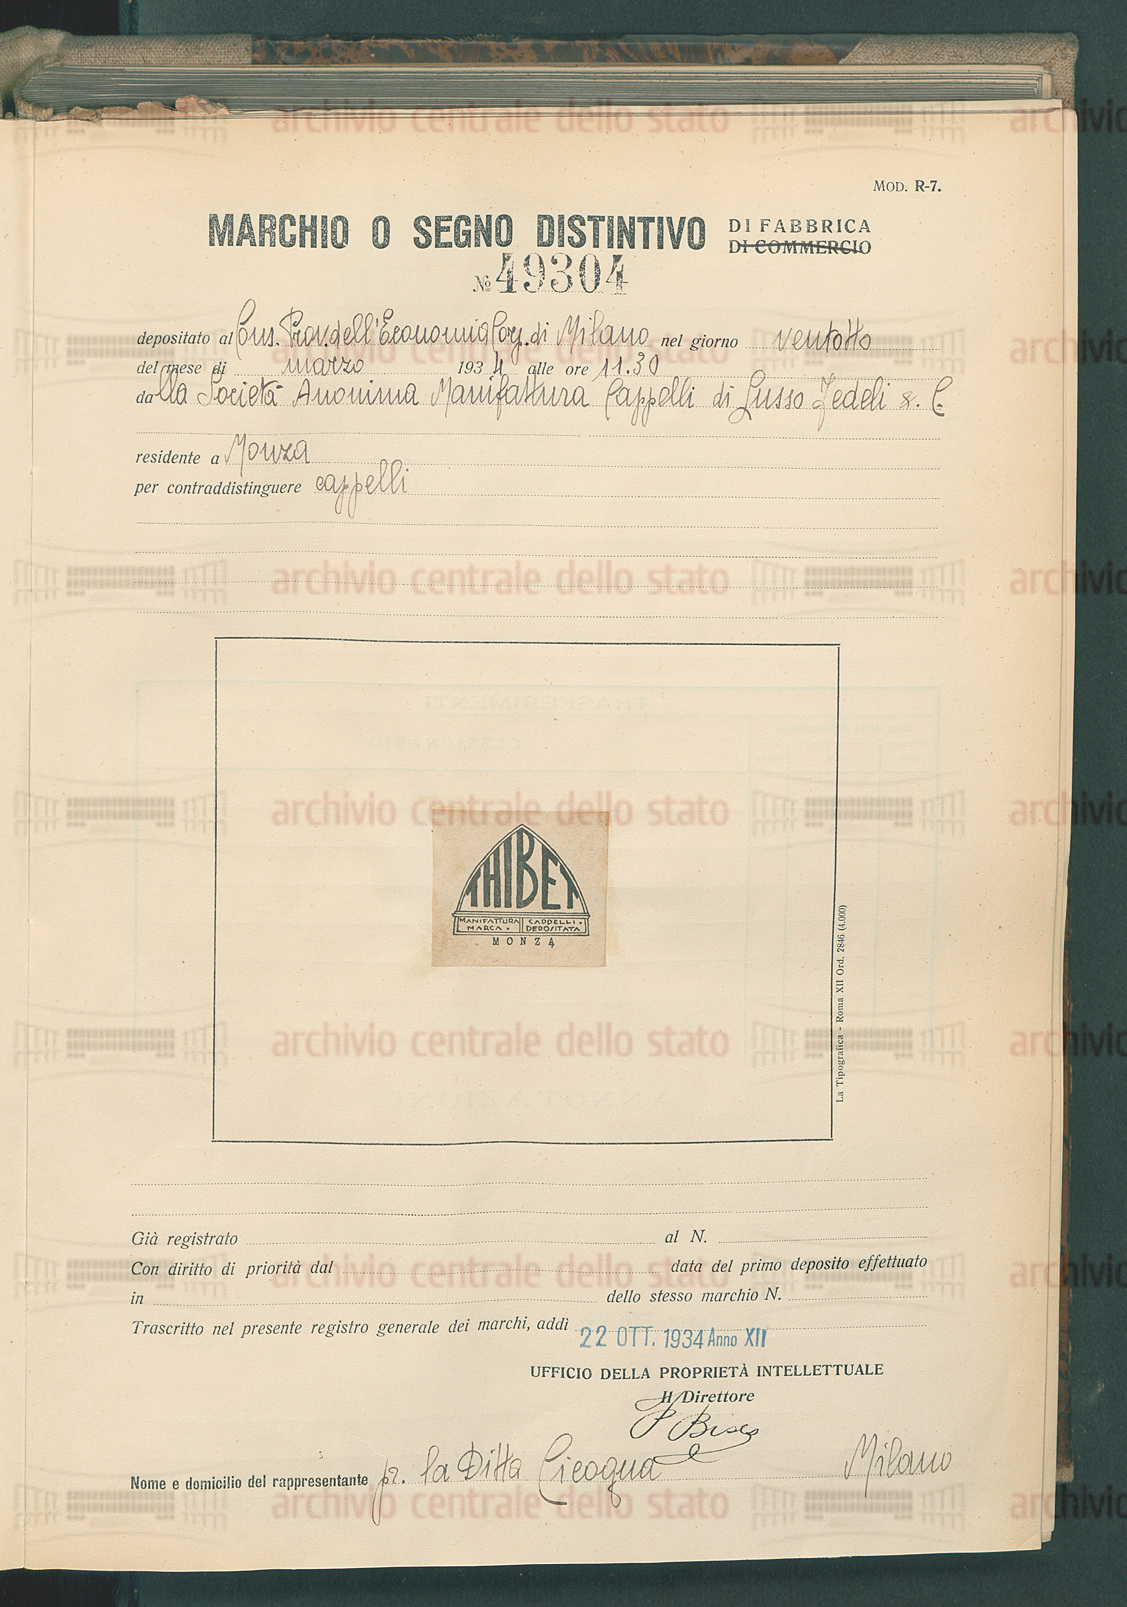 MOD. R-7.
MARCHIO O SEGNO DISTINTIVO DI FABBRICA
DI COMMERCIO
№ 49304
depositato al Cons. Prov. dell'Economia Corp. di Milano nel giorno ventotto
del mese di marzo 1934 alle ore 11.30
dalla Società Anonima Manifattura Cappelli di Lusso Fedeli & C.
residente a Monza
per contraddistinguere cappelli
THIBET
MANIFATTURA CAPPELLI
MARCA DEPOSITATA
MONZA
La Tipografica - Roma XII Ord. 2846 (4.000)
Già registrato al N.
Con diritto di priorità dal data del primo deposito effettuato
in dello stesso marchio N.
Trascritto nel presente registro generale dei marchi, addì 22 OTT. 1934 Anno XII
UFFICIO DELLA PROPRIETÀ INTELLETTUALE
Il Direttore
Nome e domicilio del rappresentante pr. la Ditta Cicogna Milano
archivio centrale dello stato
archivio centrale dello stato
archivio centrale dello stato
archivio centrale dello stato
archivio centrale dello stato
archivio centrale dello stato
archivio centrale dello stato